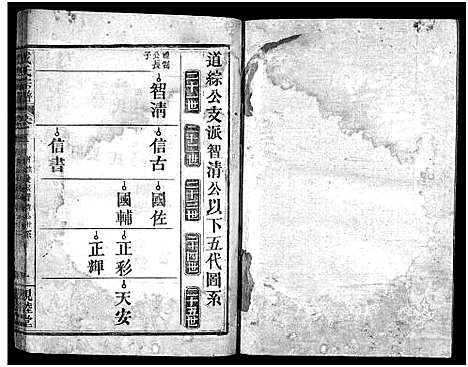 道綜公支派智清公以下五代圖系
二十一世
二十二世
二十三世
二十四世
二十五世
公長
子
智清
信古
信書
國佐
國輔
正彩
正輝
天安
親睦堂